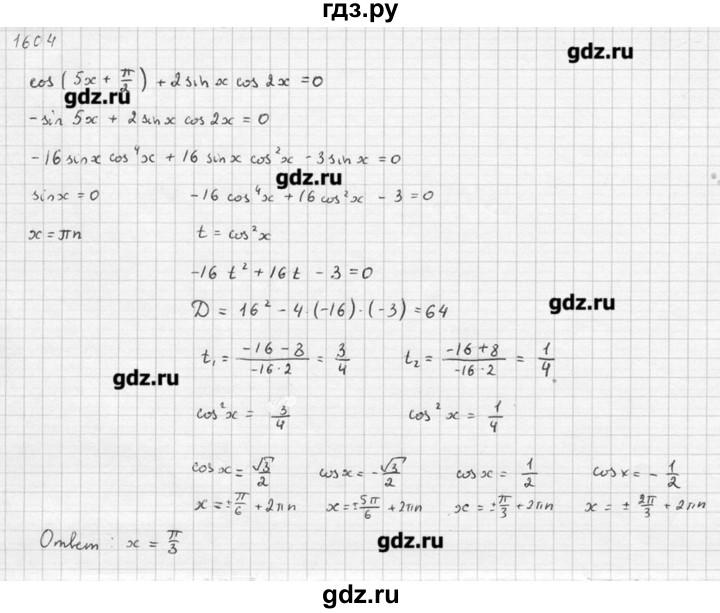 гдз.ру
1604
gdz.ru
cos(5x + π/2) + 2 sin x cos 2x = 0
gdz.ru
-sin 5x + 2 sin x cos 2x = 0
-16 sin x cos⁴x + 16 sin x cos²x - 3 sin x = 0
gdz.ru
sin x = 0 -16 cos⁴x + 16 cos²x - 3 = 0
x = πn t = cos²x
-16 t² + 16 t - 3 = 0
D = 16² - 4·(-16)·(-3) = 64
gdz.ru
t₁ = (-16 - 8)/(-16·2) = 3/4 t₂ = (-16 + 8)/(-16·2) = 1/4
gdz.ru
cos²x = 3/4 cos²x = 1/4
cos x = √3/2 cos x = -√3/2 cos x = 1/2 cos x = -1/2
x = ±π/6 + 2πn x = ±5π/6 + 2πn x = ±π/3 + 2πn x = ±2π/3 + 2πn
Ответ: x = π/3
gdz.ru
gdz.ru